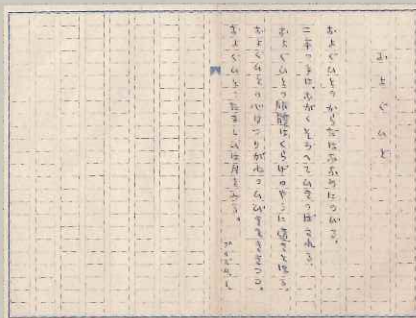 およぐひと
およぐひとのからだはななめにのびる、
二本の手はながくそろへてひきのばされる、
およぐひとの胴體はくらげのやうに透きとほる、
およぐひとの心はつりがねのひびきをききつつ、
およぐひとのたましひは月をみる。